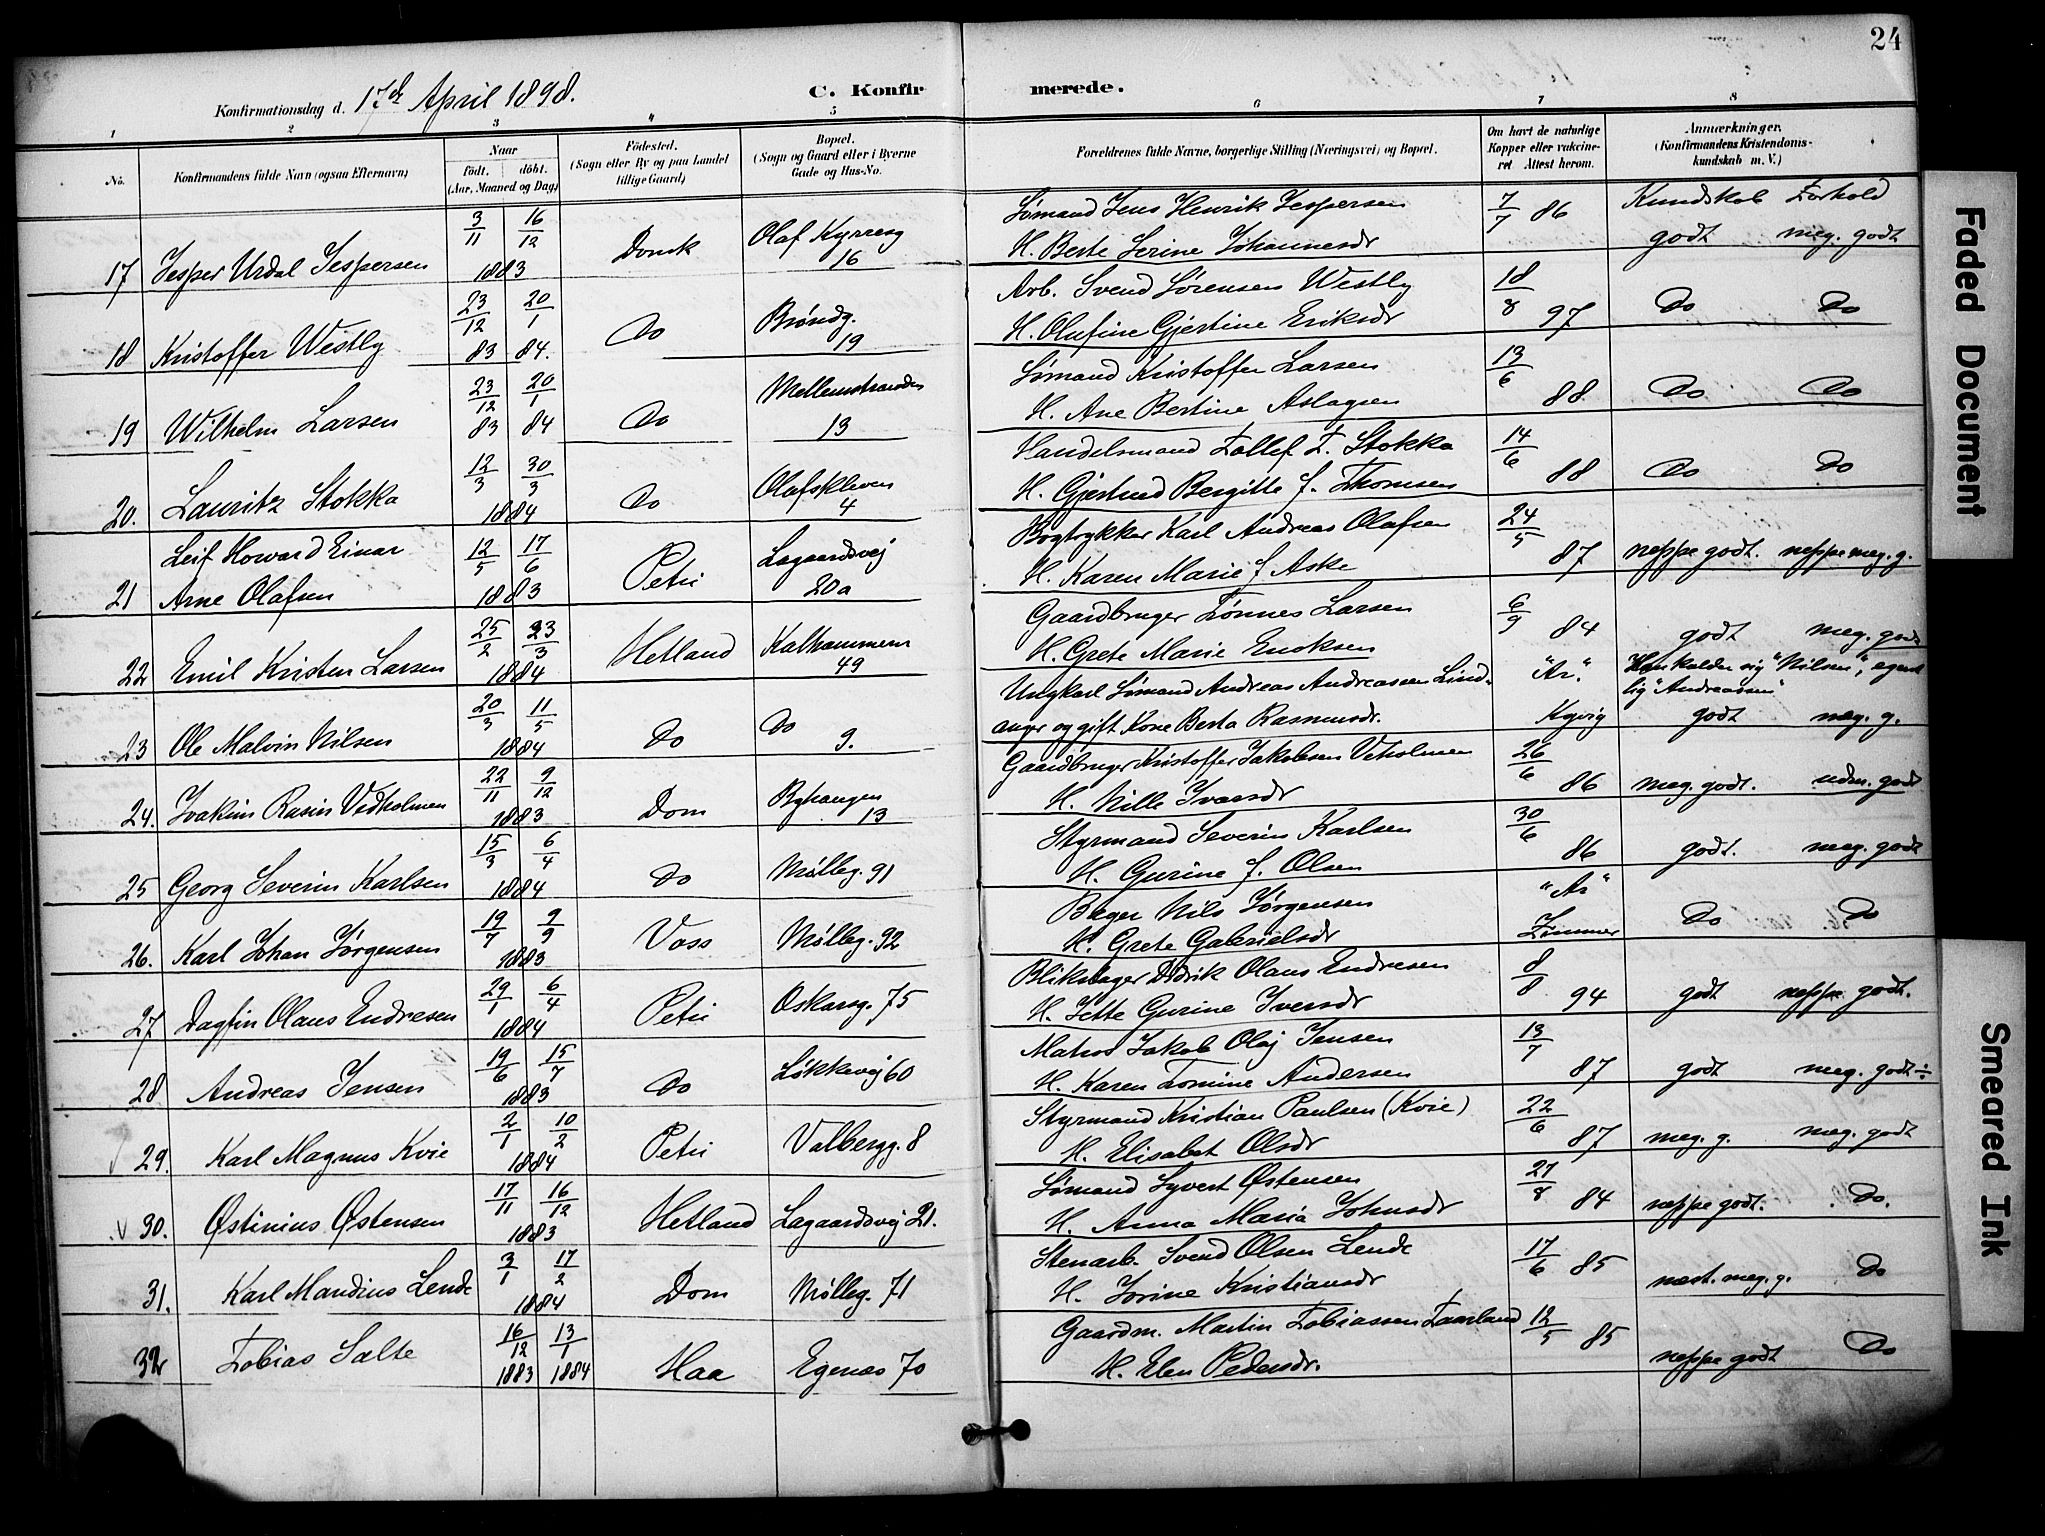 24
Konfirmationsdag d. 17de April 1898.
C. Konfirmerede.
1 2 3 4 5 6 7 8
No.
Konfirmandens fulde Navn (ogsaa Efternavn)
Naar
födt. döbt.
(Aar, Maaned og Dag)
Födested.
(Sogn eller By og paa Landet
tillige Gaard)
Bopæl.
(Sogn og Gaard eller i Byerne
Gade og Hus-No.
Forældrenes fulde Navne, borgerlige Stilling (Næringsvei) og Bopæl.
Om havt de naturlige
Kopper eller vakcine-
ret Attest herom.
Anmærkninger.
(Konfirmandens Kristendoms-
kundskab m. V.)
Kundskab Forhold
17 Jesper Urdal Jespersen 3/11 16/12 1883 Domk Olaf Kyrresg 16
Sømand Jens Henrik Jespersen
H. Berte Serine Johannesdr 7/7 86 godt meg. godt
18 Kristoffer Westly 23/12 83 20/1 84. Do Brøndg. 19
Arb. Svend Sørensen Westly
H. Olufine Gjertine Eriksdr 18/8 97 Do Do
19 Wilhelm Larsen 23/12 83 20/1 84 Do Mellemstranden 13
Sømand Kristoffer Larsen
H. Ane Bertine Aslagsen 13/6 88 Do Do
20. Lauritz Stokka 12/3 30/3 1884 Do Olafskleven 4
Handelsmand Tollef T. Stokka
H. Gjertrud Bergitte f. Thomsen 14/6 88 Do Do
21 Leif Howard Einar
Arne Olafsen 12/5 17/6 1883 Petri Lagaardsvej 20a
Bogtrykker Karl Andreas Olafsen
H. Karen Marie f Aske 24/5 87 neppe godt. neppe meg. g.
22 Emil Kristen Larsen 25/2 23/3 1884 Hetland Kalhammeren 49
Gaardbruger Tønnes Larsen
H. Grete Marie Enoksen 6/9 84 godt meg. godt
23 Ole Malvin Nilsen 20/3 11/5 1884 Do Do 9.
Ungkarl Sømand Andreas Andreassen Lind-
anger og gift Kone Berta Rasmusdr. "Ar." Kyvig
Han kalder sig "Nilsen", egent-
lig "Andreassen"
godt meg. g.
24. Joakim Rasin Vedholmen 22/11 9/12 1883 Dom Byhaugen 13
Gaardbruger Kristoffer Jakobsen Veholmen
H. Nille Ivarsdr 26/6 86 meg. godt. udm. godt
25 Georg Severin Karlsen 15/3 6/4 1884 Do Mølleg. 91
Styrmand Severin Karlsen
H. Gurine f. Olsen 30/6 86 godt. meg. godt
26. Karl Johan Jørgensen 19/7 9/9 1883 Voss Mølleg. 92
Bager Nils Jørgensen
H. Grete Gabrielsdr "Ar" Zimmer Do Do
27 Dagfin Olaus Endresen 29/1 6/4 1884 Petri Oskarsg. 75
Blikslager Didrik Olaus Endresen
H. Jette Gurine Iversdr 8/8 94 godt neppe godt.
28 Andreas Jensen 19/6 15/7 1883 Do Løkkevej 60
Matros Jakob Olaj Jensen
H. Karen Tomine Andersen 13/7 87 godt meg. godt ÷
29. Karl Magnus Kvie 2/1 10/2 1884 Petri Valbergg. 8
Styrmand Kristian Paulsen (Kvie)
H. Elisabet Olsdr 22/6 87 meg. g. meg. godt
v 30. Østinius Østensen 17/11 16/12 1883 Hetland Lagaardsvej 21.
Sømand Syvert Østensen
H. Anna Maria Johnsdr 27/8 84 neppe godt. Do.
31. Karl Mandius Lende 3/1 17/2 1884 Dom Mølleg. 71
Stenarb. Svend Olsen Lende
H. Jorine Kristiansdr 17/6 85 næst. meg. g. Do
32 Tobias Salte 16/12 1883 13/1 1884 Haa Egenæs 70
Gaardm. Martin Tobiassen Taarland
H. Elen Pedersdr. 12/5 85 neppe godt Do
Faded Document
Smeared Ink